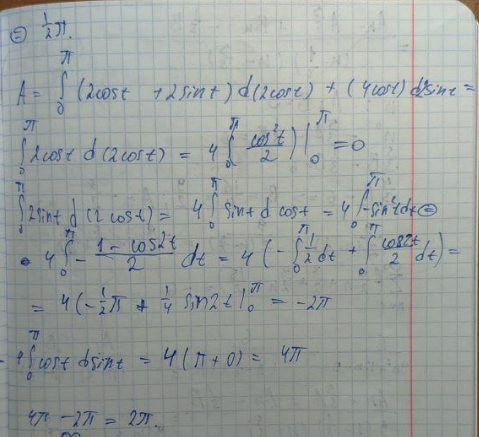 ⊜ 1/2 π.
A = ∫₀^π (2cost + 2sint) d(2cost) + (4cost) d2sint =
∫₀^π 2cost d(2cost) = 4 ∫₀^π cos²t/2 ) |₀^π = 0
∫₀^π 2sint d(2cost) = 4 ∫₀^π sint d cost = 4 ∫₀^π -sin²t dt ⊜
4 ∫₀^π - (1 - cos2t)/2 dt = 4 ( - ∫₀^π 1/2 dt + ∫₀^π cos2t/2 dt ) =
= 4 ( - 1/2 π + 1/4 sin2t |₀^π = -2π
∫₀^π cost dsint = 4 (π + 0) = 4π
4π - 2π = 2π